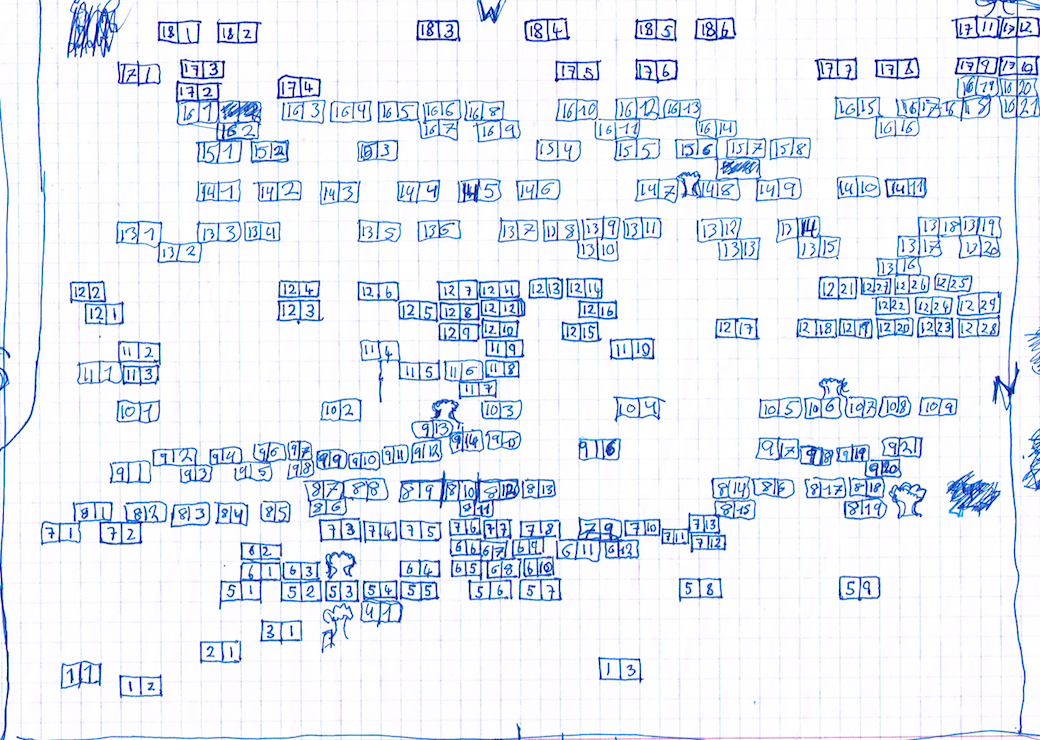 W
18 1 18 2 18 3 18 4 18 5 18 6 17 11 17 12
17 1 17 3 17 5 17 6 17 7 17 8 17 9 17 10
17 2 17 4 16 19 16 20
16 1 16 3 16 4 16 5 16 6 16 8 16 10 16 12 16 13 16 15 16 17 16 18 16 21
16 2 16 7 16 9 16 11 16 14 16 16
15 1 15 2 15 3 15 4 15 5 15 6 15 7 15 8
14 1 14 2 14 3 14 4 14 5 14 6 14 7 14 8 14 9 14 10 14 11
13 1 13 3 13 4 13 5 13 6 13 7 13 8 13 9 13 11 13 12 13 14 13 18 13 19
13 2 13 10 13 13 13 15 13 17 13 20
13 16
12 2 12 4 12 6 12 7 12 11 12 13 12 14 12 21 12 27 12 26 12 25
12 1 12 3 12 5 12 8 12 12 12 16 12 22 12 24 12 29
12 9 12 10 12 15 12 17 12 18 12 19 12 20 12 23 12 28
11 2 11 4 11 9 11 10
11 1 11 3 11 5 11 6 11 8
11 7
N
10 1 10 2 10 3 10 4 10 5 10 6 10 7 10 8 10 9
9 13
9 14 9 16 9 17 9 21
9 2 9 4 9 6 9 7 9 9 9 10 9 11 9 12 9 18 9 19
9 1 9 3 9 5 9 8 9 20
8 7 8 8 8 9 8 10 8 12 8 13 8 14 8 17 8 18
8 1 8 2 8 3 8 4 8 5 8 6 8 11 8 15 8 19
7 1 7 2 7 3 7 4 7 5 7 6 7 7 7 8 7 9 7 10 7 11 7 13
7 12
6 2 6 6 6 7 6 9 6 11 6 12
6 1 6 3 6 4 6 5 6 8 6 10
5 1 5 2 5 3 5 4 5 5 5 6 5 7 5 8 5 9
4 1
3 1
2 1
1 1 1 2 1 3